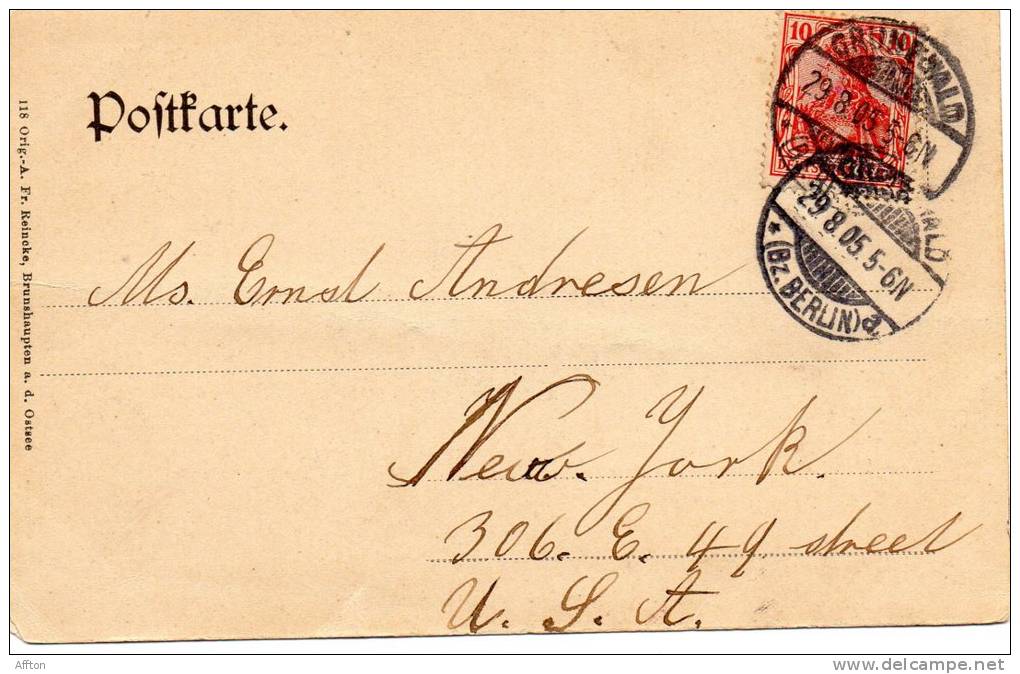 Postkarte.
10 10
GRUNEWALD
29.8.05.5-6N
29.8.05.5-6N
*(Bz.BERLIN)a.
118 Orig.-A. Fr. Reincke, Brunshaupten a. d. Ostsee
Ms. Ernst Andresen
New. York.
306. E. 49 street
U. S. A.
Affton
delcampe.net